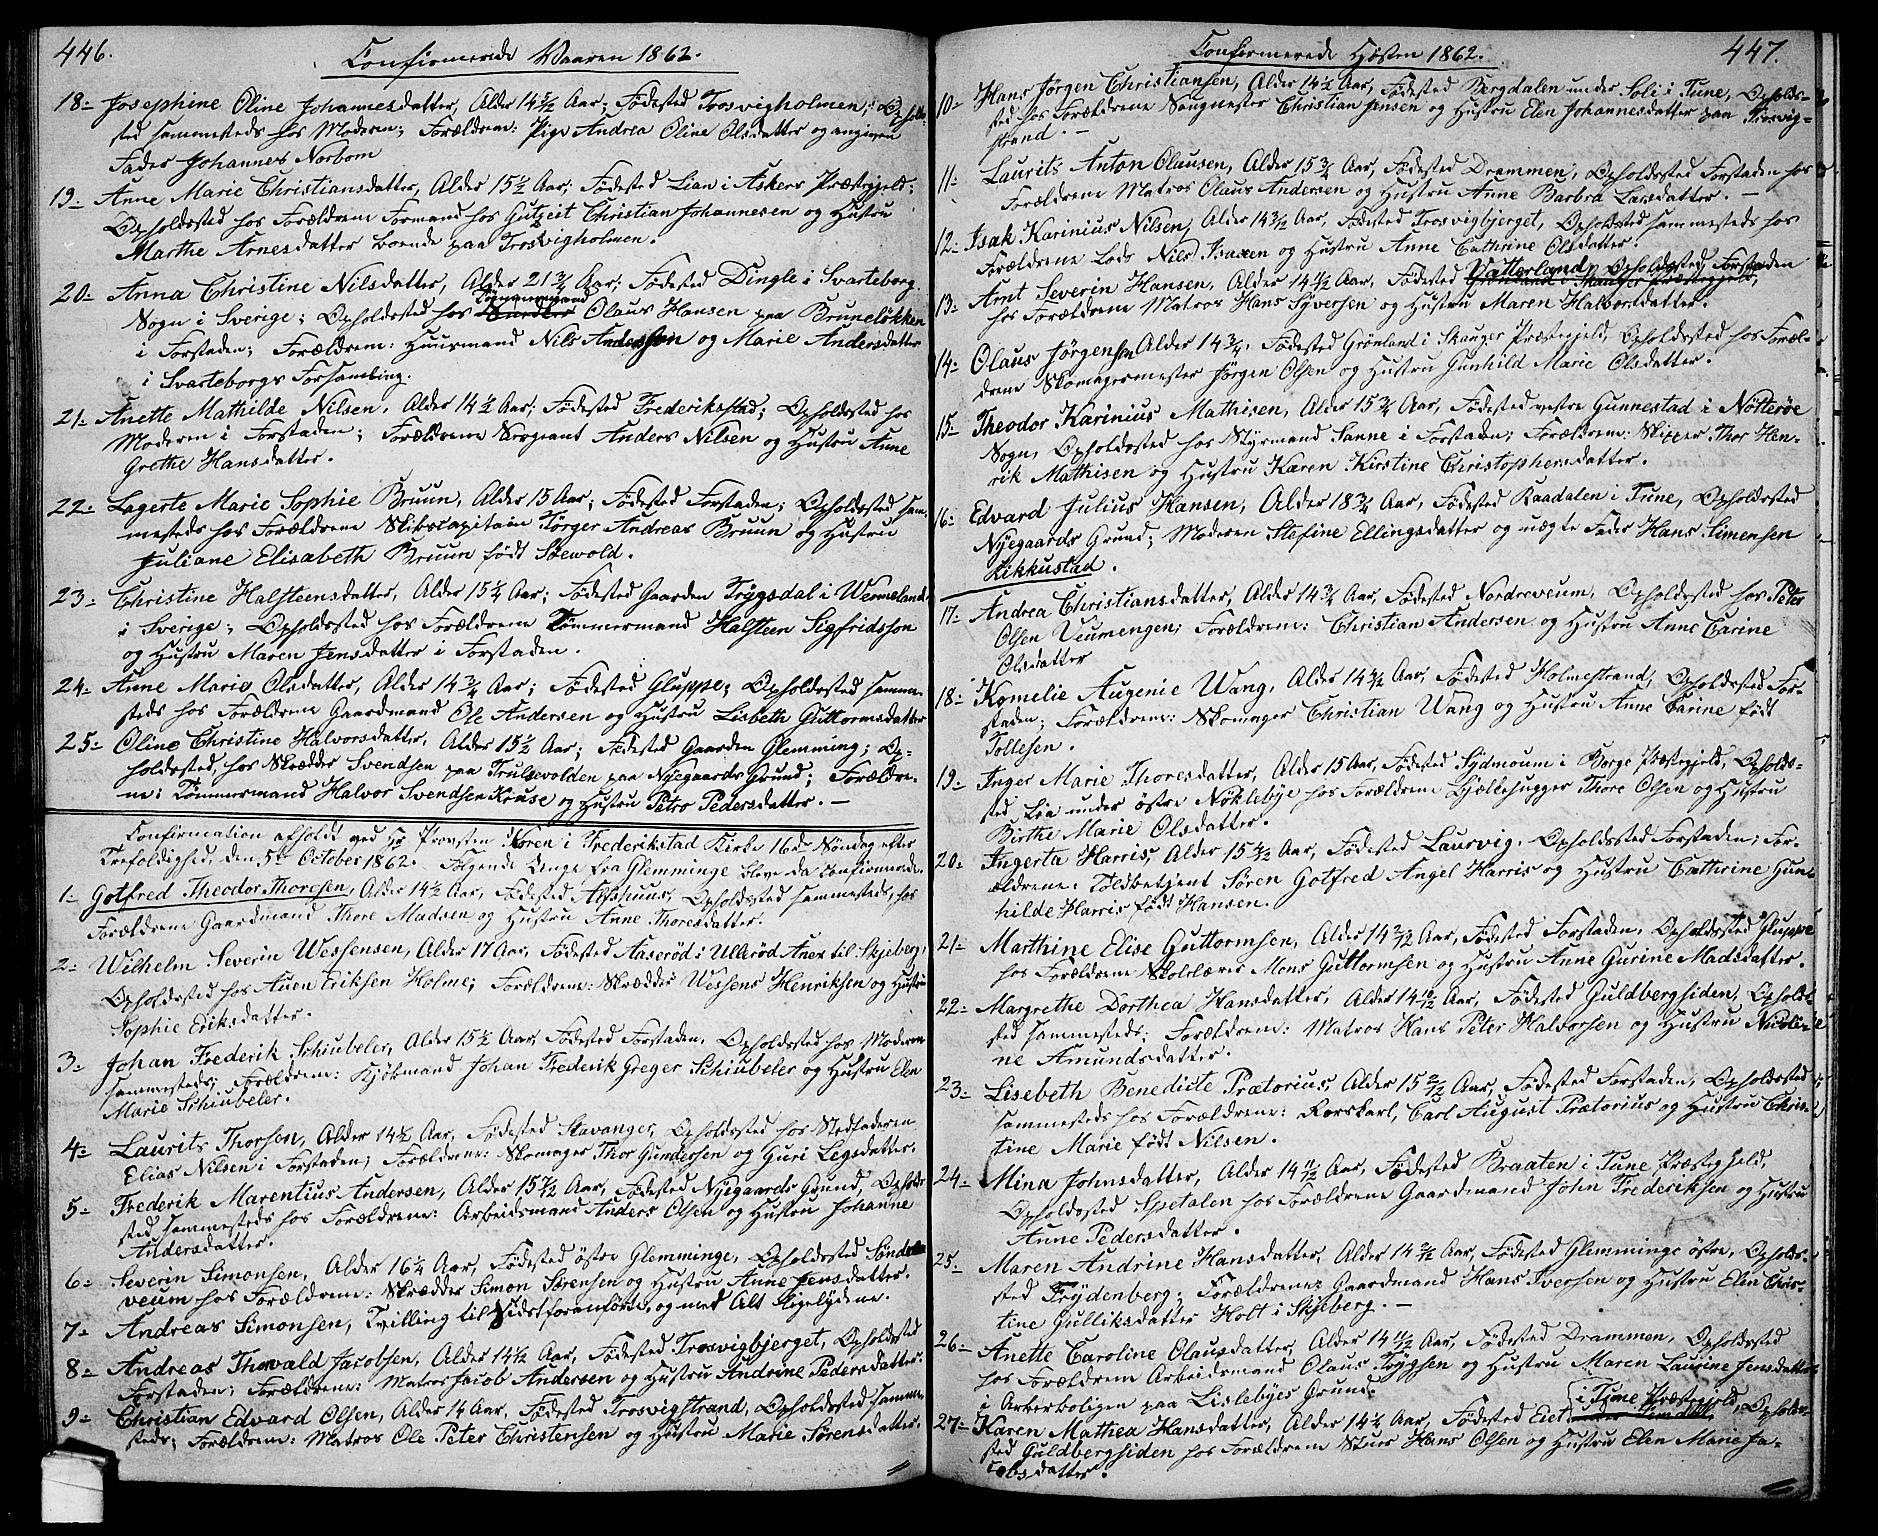 446.
Confirmerede Vaaren 1862.
18- Josephine Oline Johannesdatter, Alder 14 5/12 Aar; Födested Trosvigholmen; Ophold-
sted sammesteds hos Moderen; Forældrene: Pige Andrea Oline Olsdatter og angiven
Fader Johannes Norbom
19- Anne Marie Christiansdatter, Alder 15 1/2 Aar; Födested Lian i Askers Præstegjeld;
Opholdssted hos Forældrene Formand hos Gutzeit Christian Johannesen og Hustru
Marthe Arnesdatter boende paa Trosvigholmen.
20- Anna Christine Nilsdatter, Alder 21 3/4 Aar; Födested Dingle i Svarteborg
Sogn i Sverige; Opholdssted hos Tömmermand Olaus Hansen paa Bruneløkken
i Forstaden; Forældrene: Huusmand Nils Andersson og Marie Andersdatter
i Svarteborgs Forsamling.
21- Anette Mathilde Nilsen, Alder 14 1/2 Aar; Födested Frederiksstad; Opholdssted hos
Moderen i Forstaden; Forældrene Sergeant Anders Nilsen og Hustru Anne
Grethe Hansdatter.
22- Lagerte Marie Sophie Bruun, Alder 15 Aar; Födested Forstaden; Opholdssted sam-
mesteds hos Forældrene Skibscapitain Torger Andreas Bruun og Hustru
Juliane Elisabeth Bruun født Seewold.
23- Christine Halsteensdatter, Alder 15 1/4 Aar; Födested Gaarden Trygsdal i Wermeland
i Sverige; Opholdssted hos Forældrene Tømmermand Halsteen Sigfridsson
og Hustru Maren Jensdatter i Forstaden.
24- Anne Marie Olsdatter, Alder 14 3/4 Aar; Födested Gluppe; Opholdssted samme-
steds hos Forældrene Gaardmand Ole Andersen og Hustru Lisbeth Guttormsdatter
25- Oline Christine Halvorsdatter, Alder 15 1/2 Aar; Födested Gaarden Glemming; Op-
holdssted hos Skrædder Svendsen paa Trulsevolden paa Nyegaards Grund; Forældre-
ne: Tømmermand Halvor Svendsen Kruse og Hustru Petro Pedersdatter. —
Confirmation afholdt ved Hr Provsten Koren i Frederikstad Kirke 16de Søndag efter
Trefoldighed, den 5te October 1862. Følgende Unge fra Glemminge bleve da confirmerede.
1- Gotfred Theodor Thoresen, Alder 14 1/2 Aar, Födested Alfshuus, Opholdssted sammesteds, hos
Forældrene Gaardmand Thore Madsen og Hustru Anne Thoresdatter.
2- Wilhelm Severin Wessensen, Alder 17 Aar, Födested Aaserød i Ullerød Anex til Skjeberg,
Opholdssted hos Auen Eriksen Holme; Forældrene: Skrædder Wessens Henriksen og Hustru
Sophie Eriksdatter.
3- Johan Frederik Schiubeler, Alder 15 1/2 Aar, Födested Forstaden, Opholdssted hos Moderen
sammesteds; Forældrene: Kjøbmand Johan Frederik Greger Schiubeler og Hustru Elen
Marie Schiubeler.
4- Laurits Thorsen, Alder 14 1/2 Aar, Födested Stavanger, Opholdssted hos Stedfaderen
Elias Nilsen i Forstaden; Forældrene: Skomager Thor Gundersen og Guri Legsdatter.
5- Frederik Marentius Andersen, Alder 15 7/12 Aar, Födested Nyegaards Grund, Opholds-
sted sammesteds hos Forældrene: Arbeidsmand Anders Olsen og Hustru Johanne
Andersdatter.
6- Severin Simonsen, Alder 16 1/4 Aar, Födested østre Glemminge, Opholdssted Søndre
veum hos Forældrene: Skrædder Simon Sørensen og Hustru Anne Jensdatter.
7- Andreas Simonsen, Tvilling til Sidstforanførte, og med Alt Ligelydene.
8- Andreas Thorvald Jacobsen, Alder 14 1/2 Aar, Födested Trosvigbjerget, Opholdssted
Forstaden; Forældrene: Matros Jacob Andersen og Hustru Andrine Pedersdatter.
9- Christian Edvard Olsen, Alder 14 Aar, Födested Trosvigstrand, Opholdssted samme-
steds; Forældrene: Matros Ole Peter Christensen og Hustru Marie Sørensdatter.
447.
Confirmerede Høsten 1862.
10- Hans Jörgen Christiansen, Alder 14 1/2 Aar, Födested Bergdalen under Soli i Tune, Opholds-
sted hos Forældrene Saugmester Christian Jensen og Hustru Elen Johannesdatter paa Trosvig-
strand. —
11- Laurits Anton Olausen, Alder 15 3/4 Aar, Födested Drammen, Opholdssted Forstaden hos
Forældrene Matros Olaus Andersen og Hustru Anne Barbra Larsdatter. —
12- Isak Karinius Nilsen, Alder 14 3/12 Aar, Födested Trosvigbjerget, Opholdssted sammesteds hos
Forældrene Lods Nils Isaxen og Hustru Anne Cathrine Olsdatter.
13- Arnt Severin Hansen, Alder 14 11/12 Aar, Födested Vatterland, Opholdssted Forstaden
hos Forældrene Matros Hans Syversen og Hustru Maren Halvorsdatter.
14- Olaus Jørgensen Alder 14 3/4, Födested Grönland i Skauger Præstegjeld, Opholdssted hos Foræl-
drene Skomagermester Jörgen Olsen og Hustru Gunhild Marie Olsdatter.
15- Theodor Karinius Mathisen, Alder 15 3/4 Aar, Födested vestre Gunnestad i Nötterøe
Sogn, Opholdssted hos Styrmand Sanne i Forstaden; Forældrene: Skipper Thor Hen-
rik Mathisen og Hustru Karen Kirstine Christophersdatter.
16- Edvard Julius Hansen, Alder 18 3/4 Aar, Födested Kaadalen i Tune, Opholdssted
Nyegaards Grund; Moderen Stefine Ellingsdatter og uægte Fader Hans Simensen
Kikkustad.
17- Andrea Christiansdatter, Alder 14 3/4 Aar, Födested Nordreveum, Opholdssted hos Peter
Olsen Veumengen; Forældrene: Christian Andersen og Hustru Anne Carine
Olsdatter
18- Komelie Augenie Wang, Alder 14 3/12 Aar, Födested Holmestrand, Opholdssted For-
staden; Forældrene: Skomager Christian Wang og Hustru Anne Carine født
Tollesen.
19- Inger Marie Thoresdatter, Alder 15 Aar, Födested Sydmoum i Borge Præstegjeld, Opholds-
sted Lia under østre Nøklebye hos Forældrene Fjællehugger Thore Olsen og Hustru
Birthe Marie Olsdatter.
20- Ingerta Harris, Alder 15 4/12 Aar, Födested Laurvig, Opholdssted Forstaden; For-
ældrene: Toldbetjent Sören Gotfred Angel Harris og Hustru Cathrine Gun-
hilde Harris født Hansen.
21- Marthine Elise Guttormsen, Alder 14 2/12 Aar, Födested Forstaden, Opholdssted Gluppe
hos Forældrene Skolelærer Mons Guttormsen og Hustru Anne Gurine Madsdatter.
22- Margrethe Dorthea Hansdatter, Alder 14 10/12 Aar, Födested Guldbergsiden, Opholds-
sted sammesteds; Forældrene: Matros Hans Peter Halvorsen og Hustru Nicoli-
ne Amundsdatter.
23- Lisebeth Benedicte Prætorius, Alder 15 2/12 Aar, Födested Forstaden, Opholdssted
sammesteds hos Forældrene: Rorskarl, Carl August Prætorius og Hustru Chris-
tine Marie født Nilsen.
24- Mina Johnsdatter, Alder 14 11/12 Aar, Födested Braaten i Tune Præstegjeld,
Opholdssted Spetalen hos Forældrene Gaardmand John Frederiksen og Hustru
Anne Pedersdatter.
25- Maren Andrine Hansdatter, Alder 14 9/12 Aar, Födested Glemminge østre, Opholds-
sted Frydenberg; Forældrene: Gaardmand Hans Iversen og Hustru Elen Chris-
tine Gulliksdatter Holt i Skjeberg. —
26- Anette Caroline Olausdatter, Alder 14 11/12 Aar, Födested Drammen, Opholdssted
hos Forældrene Arbeidsmand Olaus Trygsen og Hustru Maren Laurine Jensdatter
i Arberboligen paa Lislebyes Grund.
27- Karen Mathea Hansdatter, Alder 14 1/2 Aar, Födested Eiet i Tune Præstegjeld, Opholds-
sted Guldbergsiden hos Forældrene Stuer Hans Olsen og Hustru Elen Marie Ja-
cobsdatter.